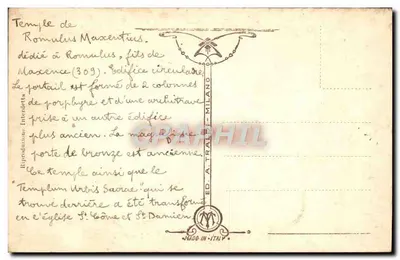 Temple de
Romulus Maxentius.
dédié à Romulus, fils de
Maxence (309). Edifice circulaire
Le portail est formé de 2 colonnes
de porphyre et d'une architrave
prise à un autre édifice
plus ancien. La magnifique
porte de bronze est ancienne
Ce temple ainsi que le
"Templum Urbis Sacrae" qui se
trouve derrière a été transformé
en l'église St. Côme et St Damien.
Riproduzione Interdetta
ED. A. TRALDI - MILANO
MADE IN ITALY
CARTAPHIL